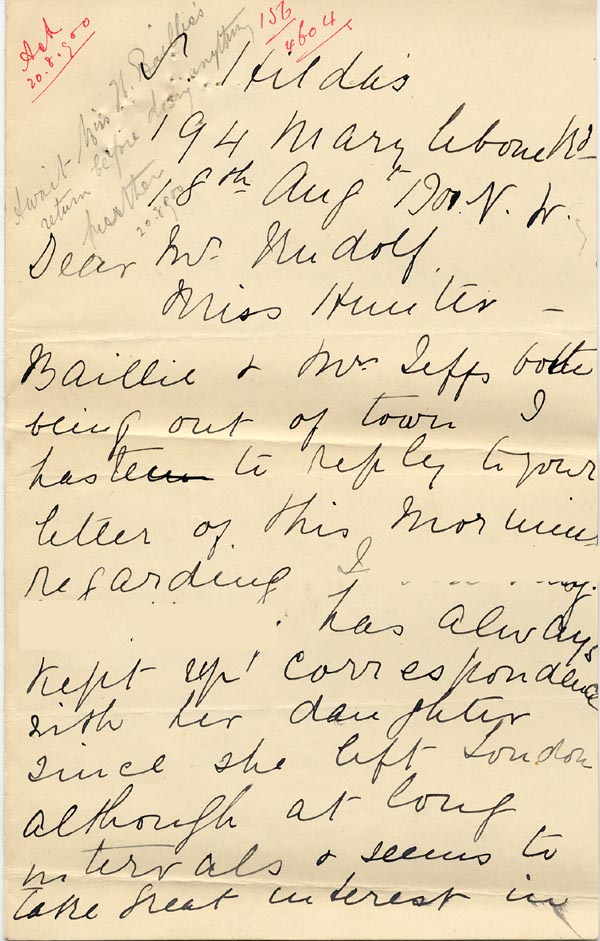 Ack
20.8.900
156
4604
Await Miss H. Baillie's
return before doing anything
further
20.8.900
St Hilda's
194 Marylebone Rd
18th Aug 1900. N. W.
Dear Mr. Rudolf
Miss Hunter -
Baillie & Mrs Jeffs both
being out of town I
hasten to reply to your
letter of this Morning
regarding
has always
kept up correspondence
with her daughter
since she left London
although at long
intervals & seems to
take great interest in